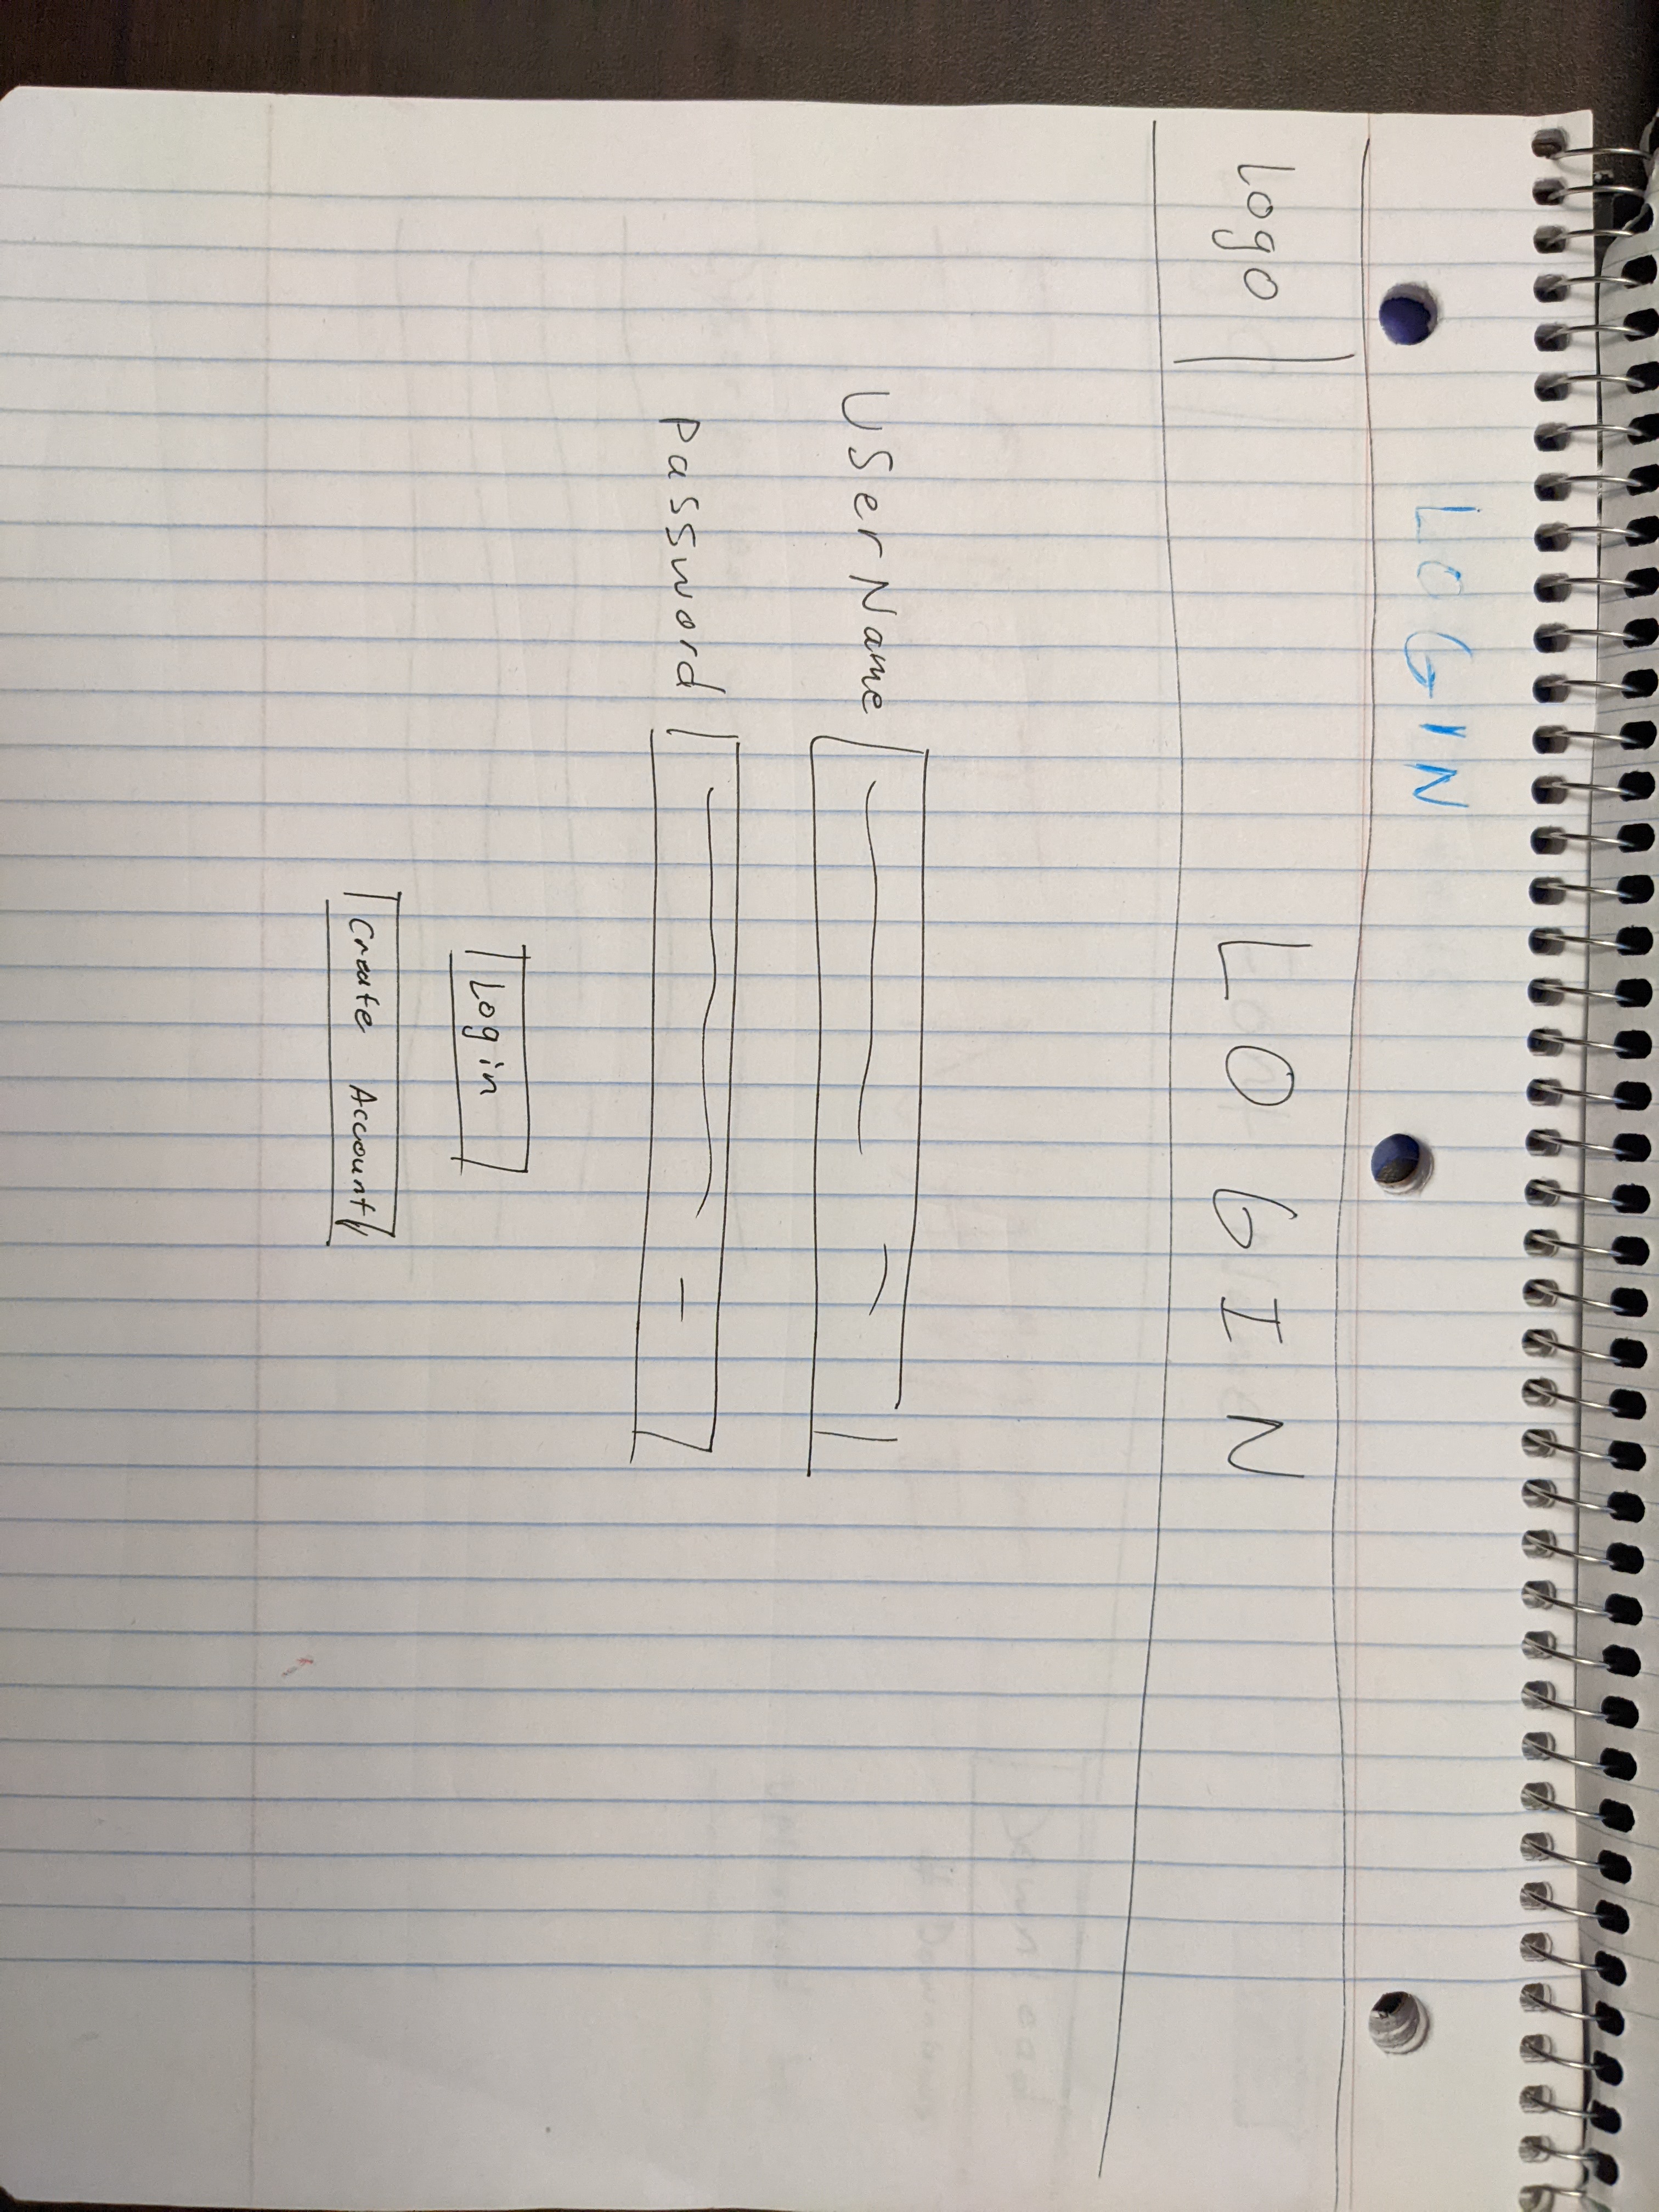 LOGIN
Logo LOGIN
UserName
Password
Login
Create Account